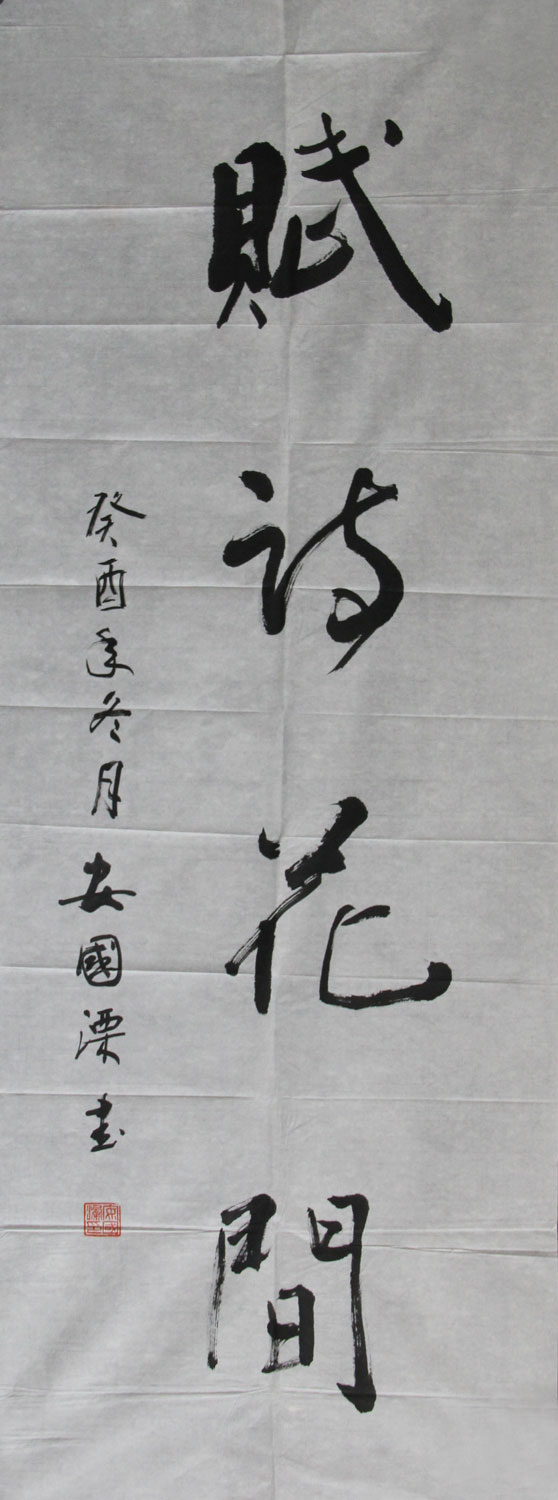 賦詩花間
癸酉年冬月安國溧書